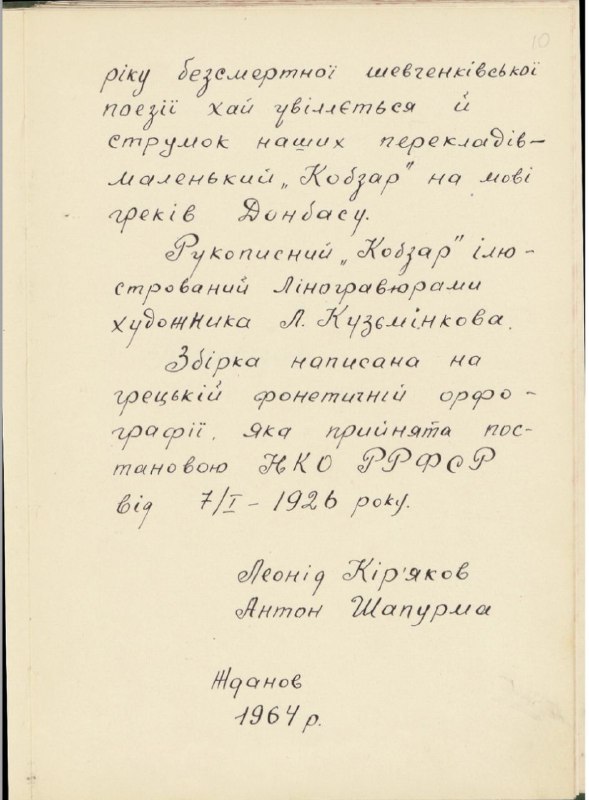 10
ріку безсмертної шевченківської
поезії хай увіллється й
струмок наших перекладів–
маленький „Кобзар" на мові
греків Донбасу.
Рукописний „Кобзар" ілю-
стрований ліногравюрами
художника Л. Кузьмінкова.
Збірка написана на
грецькій фонетичній орфо-
графії, яка прийнята пос-
тановою НКО РРФСР
від 7/I – 1926 року.
Леонід Кір'яков
Антон Шапурма
Жданов
1964 р.